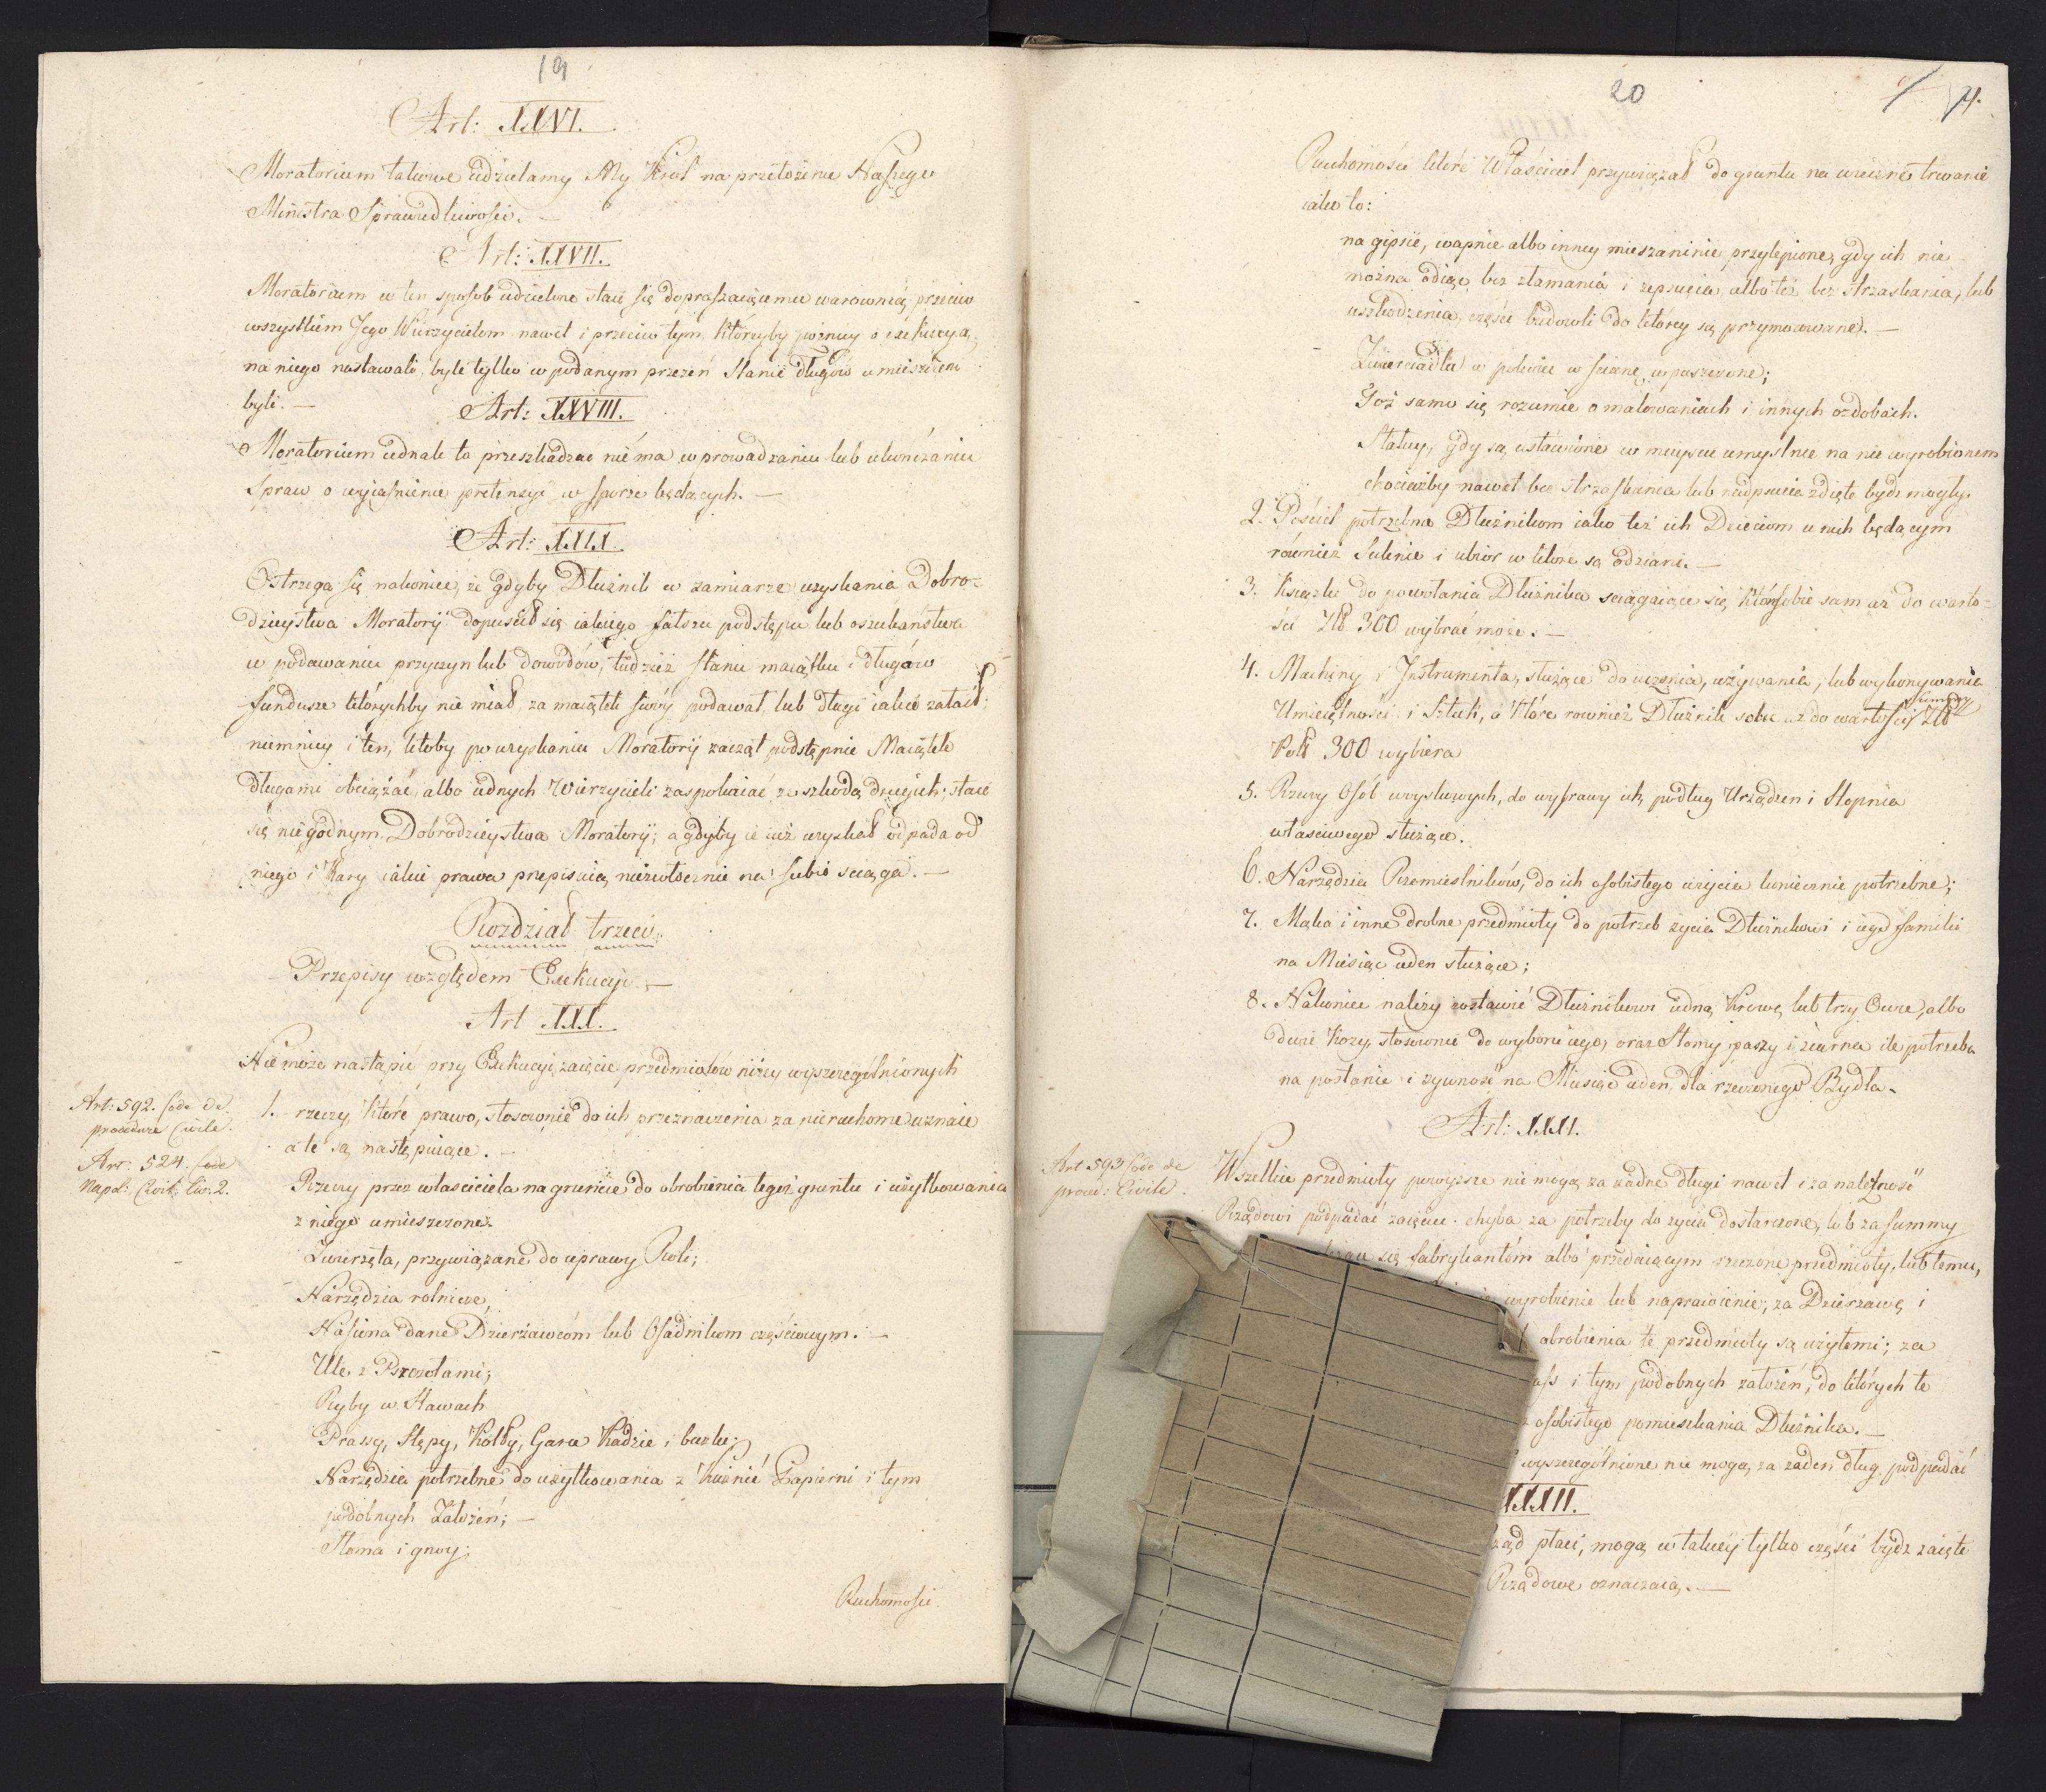 19
Art: XXVI.
Moratorium takowe udzielamy My Król na przełożenie Naszego
Ministra Sprawiedliwości. —
Art: XXVII.
Moratorium w ten sposób udzielone staie się dopraszaiącemu warownią przeciw
wszystkim Jego Wierzycielom nawet i przeciw tym, którzyby poźniey o exekucyą
na niego nastawali, byle tylko w podanym przezeń Stanie długów umieszczeni
byli. —
Art: XXVIII.
Moratorium iednak to przeszkadzać nié ma wprowadzaniu lub ukończaniu
Spraw o wyiaśnienie pretensyi w sporze będących. —
Art: XXIX.
Ostrzega się nakoniec, że gdyby Dłużnik w zamiarze uzyskania Dobro-
dzieystwa Moratorÿ dopuścił się iakiego fałszu podstępu lub oszukaństwa
w podawaniu przyczyn lub dowodów, tudzież stanu maiątku i długów
fundusze którychby nie miał, za maiątek swóy podawał, lub długi iakié zataił;
niemniey i ten, któby po uzyskaniu Moratorÿ zaczął podstępnie Maiątek
długami obciążać, albo iednych Wierzycieli zaspokaiać ze szkodą drugich; staie
się niegodnym Dobrodzieystwa Moratorÿ; a gdyby ie iuż uzyskał odpada od
niego i Kary iakie prawa przepisuią niezwłocznie na siebie sciąga. —
Rozdział trzeci.
Przepisy względem Exekucyi. —
Art XXX.
Nie może nastąpić przy Exekucyi zaięcie przedmiotów niżey wyszczególnionych
Art: 592. Code de
procedure Civile.
1. rzeczy, któré prawo, stosownie do ich przeznaczenia za nieruchome uznaie
a te są następuiące. —
Art: 524. Code
Napol: Civil. Liv. 2.
Rzeczy przez własciciela na gruncie do obrobienia tegoż gruntu i użytkowania
z niego umieszczone.
Zwierzęta, przywiązane do uprawy Roli;
Narzędzia rolnicze,
Nasiona dane Dzierżawcom lub Osadnikom częściowym. —
Ule z Pszczołami;
Ryby w Stawach
Prassy, Stępy, Kotły, Garce Kadzie i beczki;
Narzędzia potrzebne do użytkowania z Kuźnić Papierni i tym
podobnych Założeń; —
Słoma i gnoy;
Ruchomości
20
Ruchomości któré Właściciel przywiązał do gruntu na wieczné trwanie
iako to:
na gipsie, wapnie albo inney mieszaninie przylepione, gdy ich nie
można odiąć bez złamania i zepsucia, albo téż bez strzaskania, lub
uszkodzenia, części budowli do którey są przymocowane). —
Zwierciadła w polewce w scianę wpuszczone;
Toż samo się rozumie o malowaniach i innych ozdobach.
Statuy, gdy są ustawione w mieyscu umyślnie na nie wyrobionem
chociażby nawet bez strzaskania lub nadpsucia zdięte bydź mogły.
2. Pościel potrzebna Dłużnikom iako też ich Dzieciom u nich będącym
również Suknie i ubior w które są odziani. —
3. Książki do powołania Dłużnika sciągaiące się, które sobie sam aż do warto-
ści Złł 300 wybrać może. —
4. Machiny i Instrumenta, służące do uczenia, używania, lub wykonywania
Umieiętności i Sztuk, a które rownież Dłużnik sobie aż do wartości Złł
Polł 300 wybiera
5. Rzeczy Osób woyskowych, do wyprawy ich, podług Urządzeń i Stopnia
własciwego służące.
6. Narzędzia Rzemieślników, do ich osobistego użycia koniecznie potrzebne;
7. Mąka i inne drobne przedmioty do potrzeb życia Dłużnikowi i iego familii
na Miesiąc ieden służące;
8. Nakoniec należy zostawić Dłużnikowi iedną Krowę, lub trzy Owce, albo
dwie Kozy, stosownie do wyboru iego, oraz Słomy, paszy i ziarna ile potrzeba
na posłanie i żywność na Miesiąc ieden, dla rzeczonego Bydła.
Art: XXXI.
Art 593 Code de
proced: Civile.
Wszelkie przedmioty powyższe nie mogą za żadne długi nawet i za należność
Rządowi podpadać zaięciu. chyba za potrzeby do życia dostarczone, lub za summy
się fabrykantom albo przedaiącym rzeczone przedmioty, lub temu,
wyrobienie lub naprawienie; za Dzierzawę i
obrobienia te przedmioty są użytemi; za
i tym podobnych założeń, do których te
osobistego pomieszkania Dłużnika. —
wyszczególnione nie mogą za żaden dług podpadać
XXXII.
płaci, mogą w takiéy tylko części bydź zaięte
Rządowe oznaczaią. —